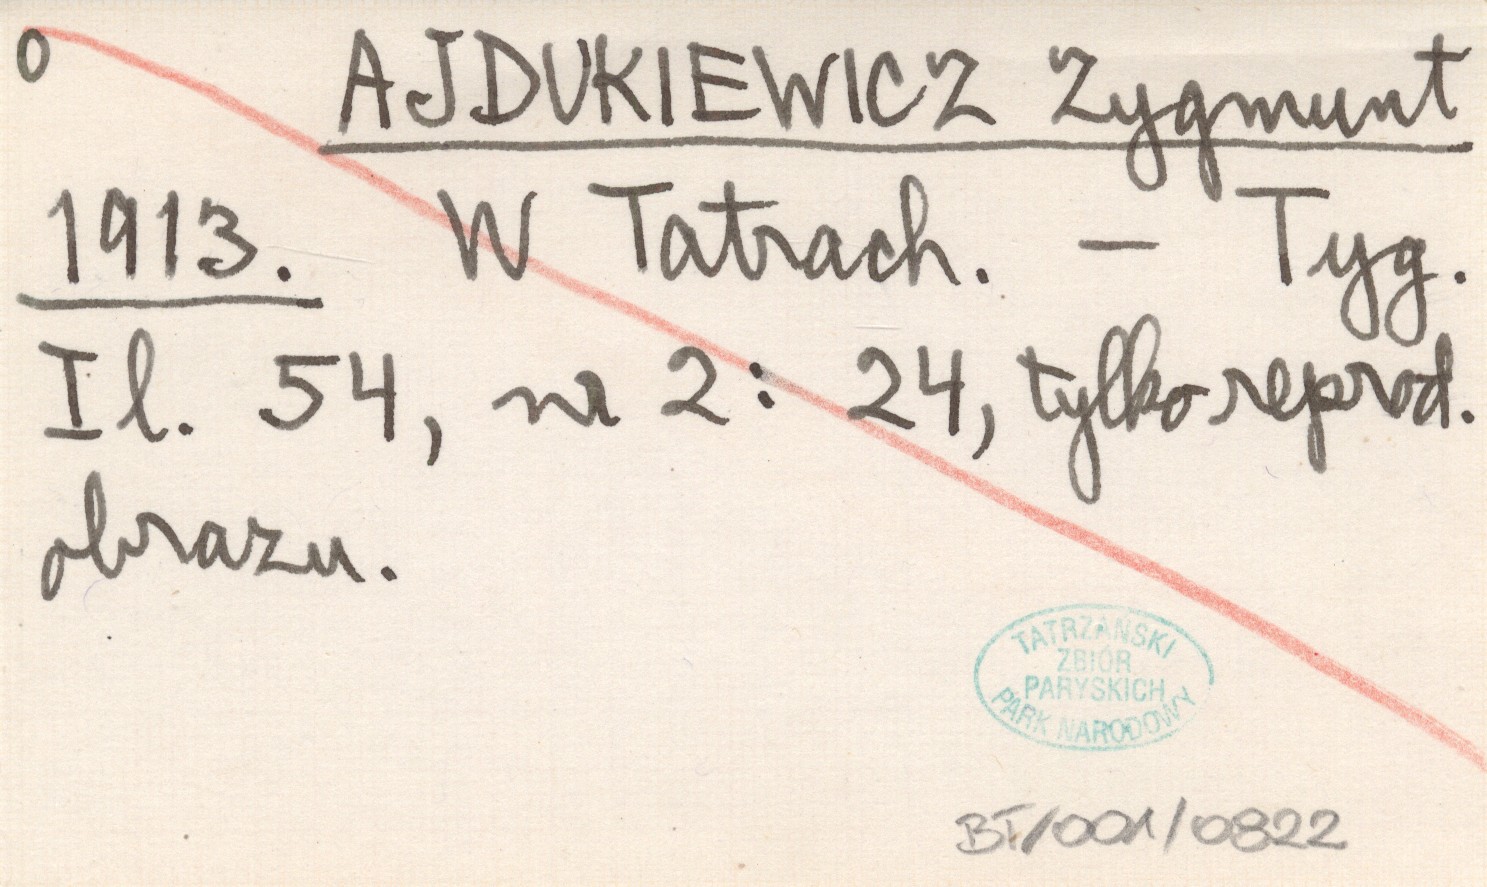 O AJDUKIEWICZ Zygmunt
1913. W Tatrach. – Tyg.
Il. 54, nr 2: 24, tylko reprod.
obrazu.
TATRZAŃSKI
ZBIÓR
PARYSKICH
PARK NARODOWY
BT/001/0822